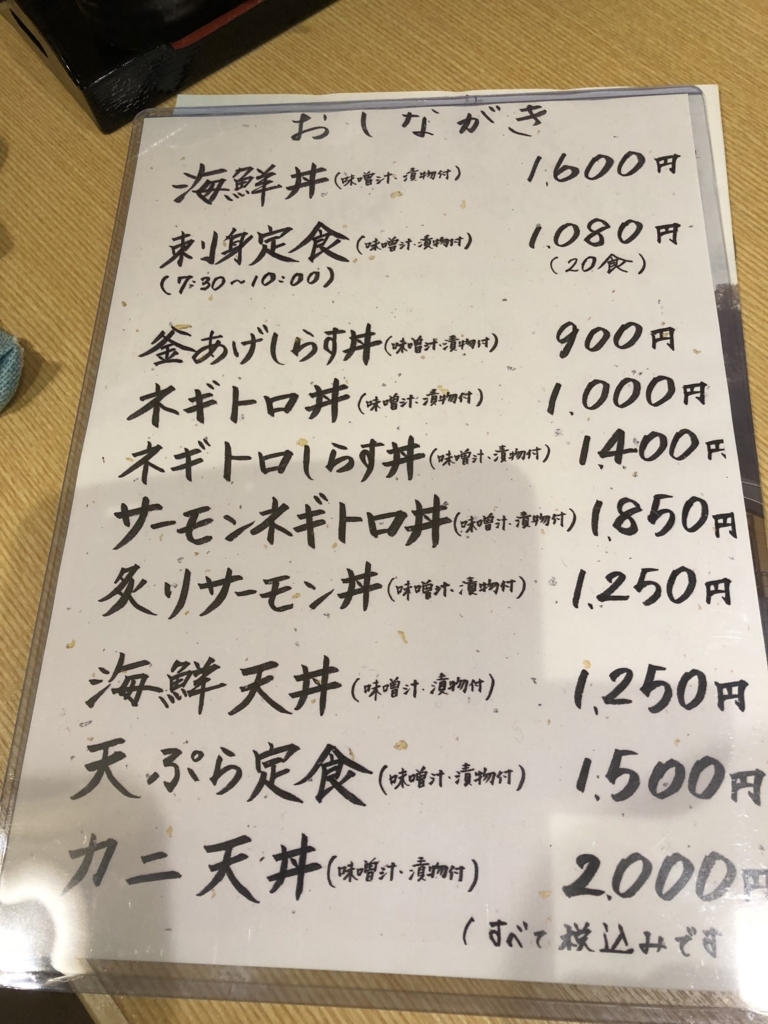 おしながき
海鮮丼(味噌汁・漬物付) 1,600円
刺身定食(味噌汁・漬物付) 1,080円
(7:30〜10:00) (20食)
釜あげしらす丼(味噌汁・漬物付) 900円
ネギトロ丼(味噌汁・漬物付) 1,000円
ネギトロしらす丼(味噌汁・漬物付) 1,400円
サーモンネギトロ丼(味噌汁・漬物付) 1,850円
炙りサーモン丼(味噌汁・漬物付) 1,250円
海鮮天丼(味噌汁・漬物付) 1,250円
天ぷら定食(味噌汁・漬物付) 1,500円
カニ天丼(味噌汁・漬物付) 2,000円
(すべて税込みです